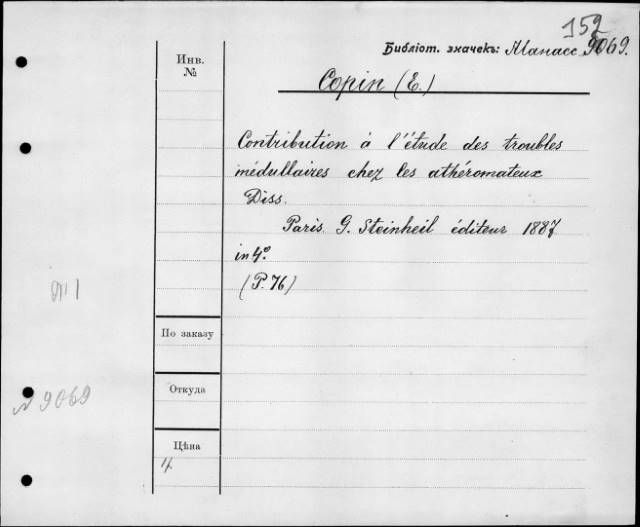 152
Библіот. значекъ: Манасс. 9069.
Инв.
№
Copin (E.)
Contribution à l'étude des troubles
médullaires chez les athéromateux
Diss.
Paris. G. Steinheil éditeur 1887
in 4º.
(P. 76)
По заказу
Откуда
№ 9069
Цѣна